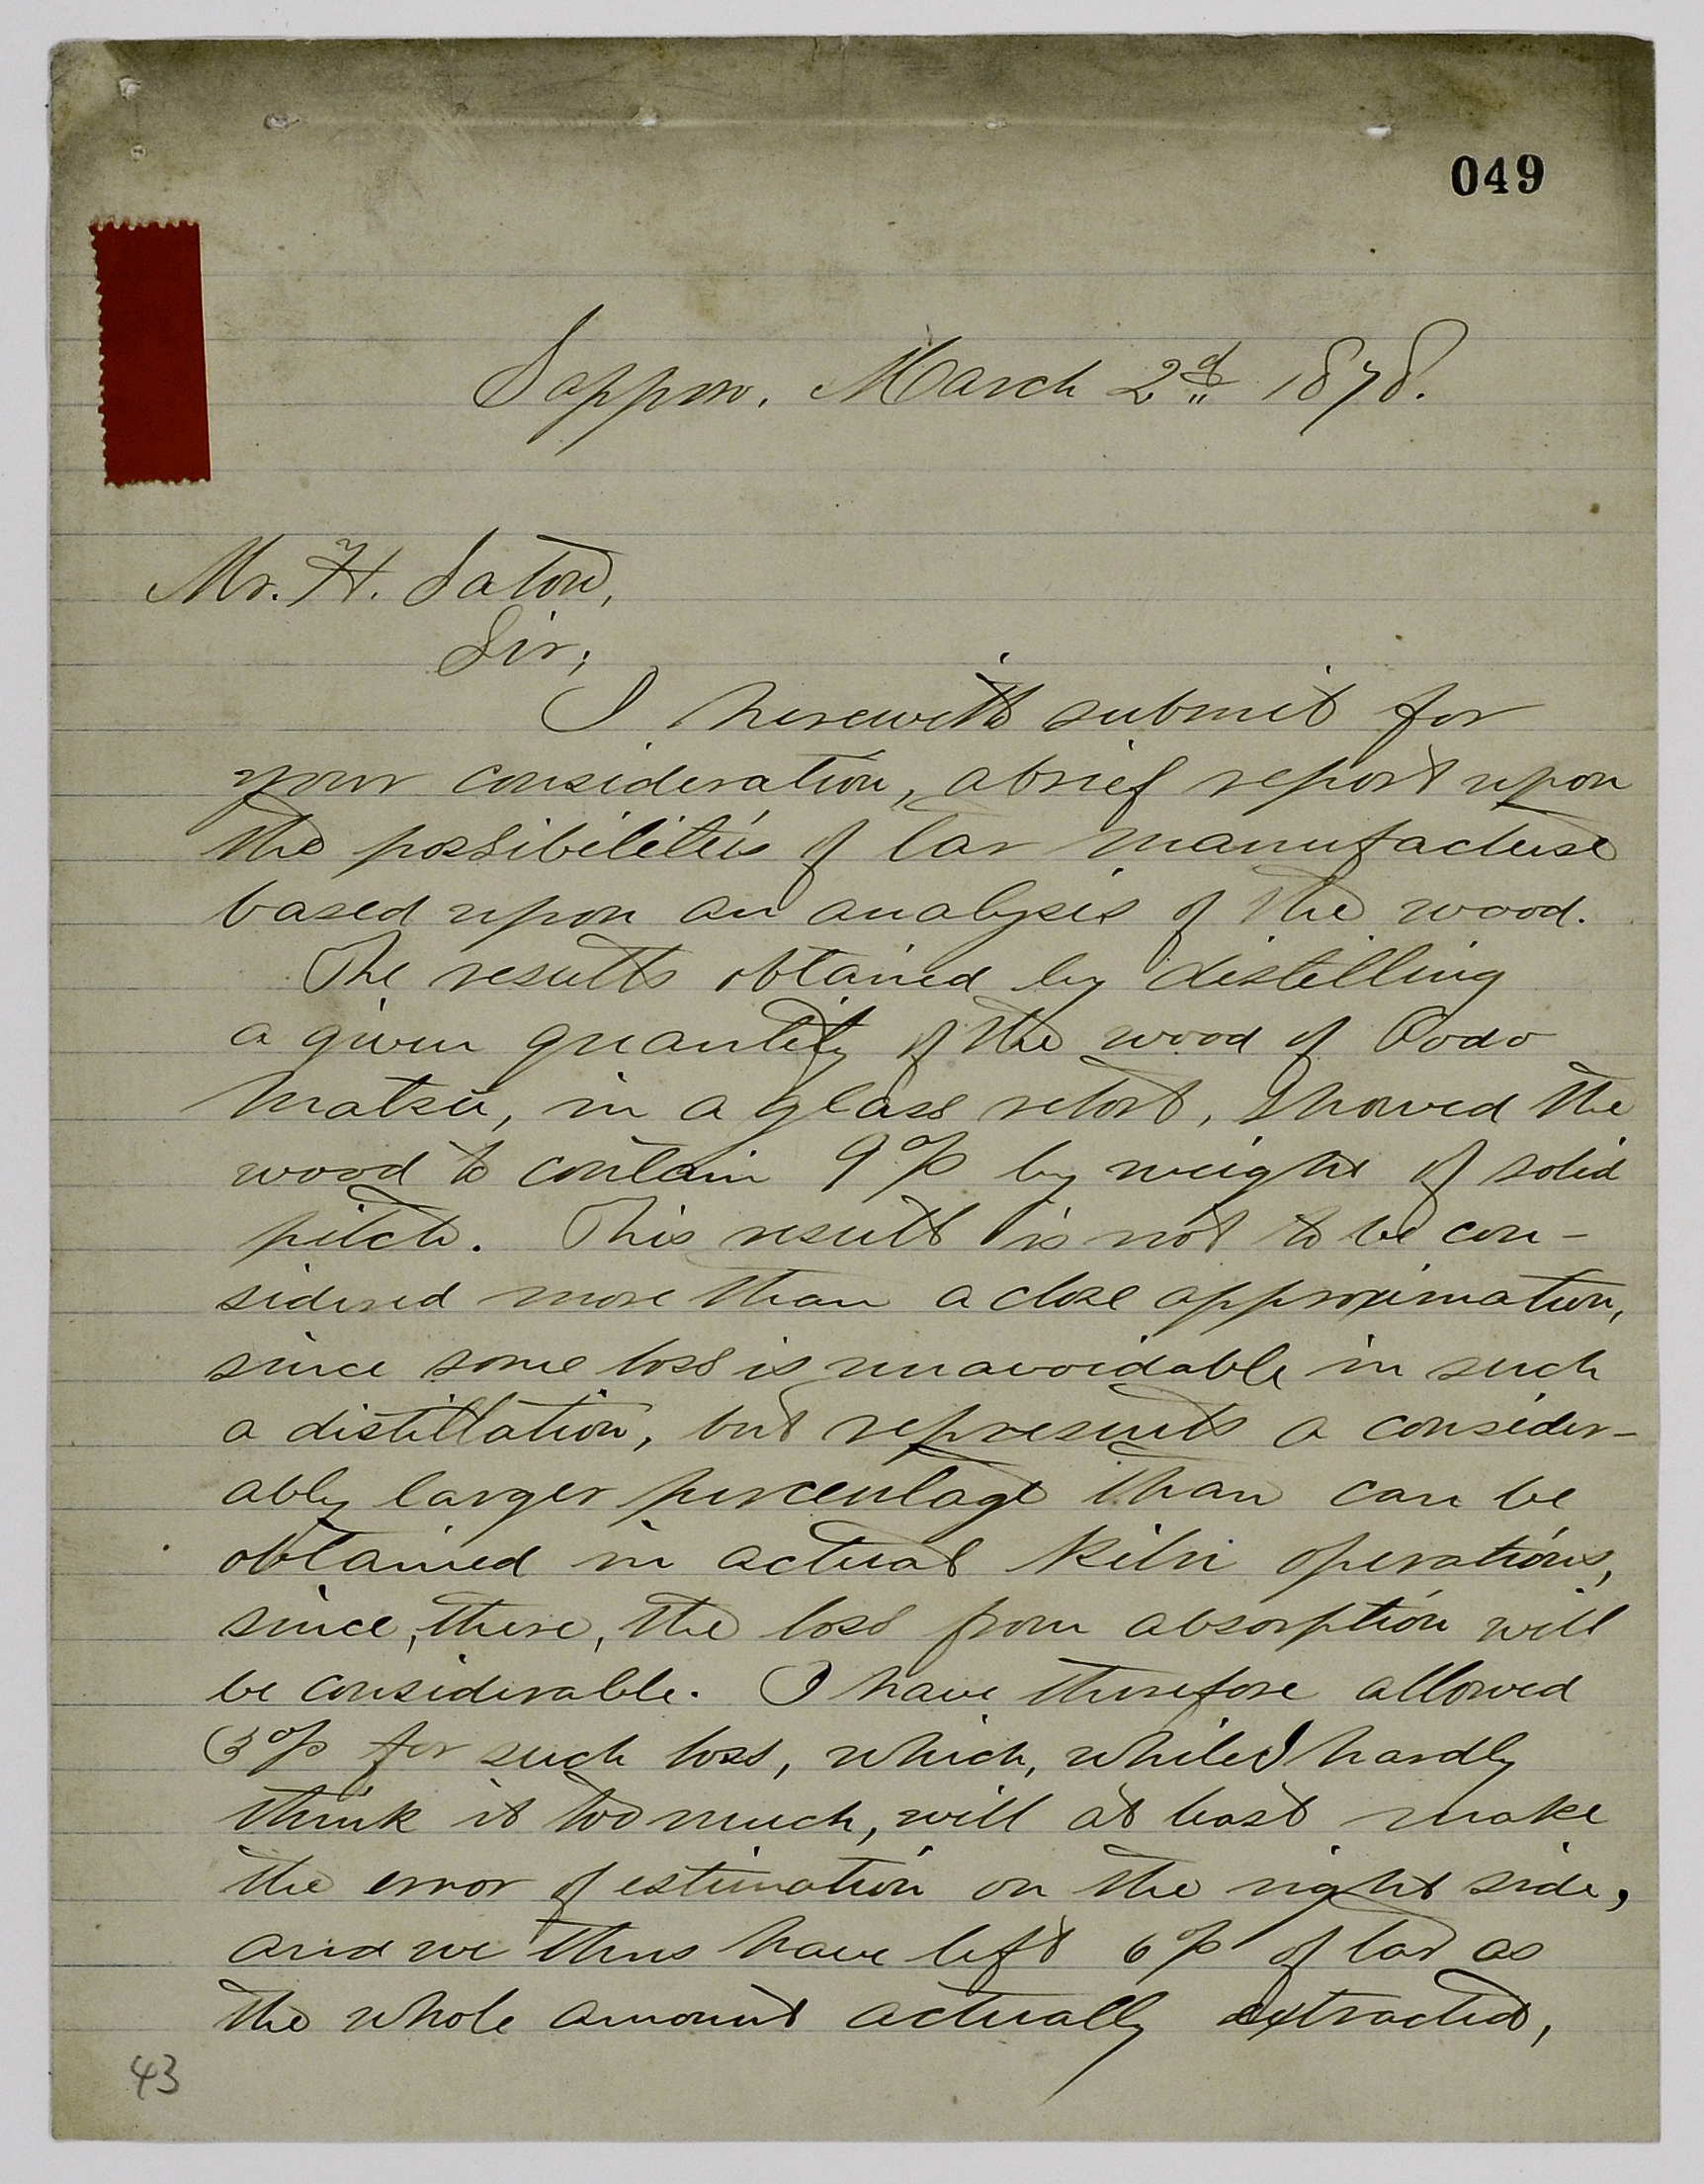 049
Sapporo, March 2d 1878.
Mr. H. Satow,
Sir;
I herewith submit for
your consideration, a brief report upon
the possibilities of tar manufacture
based upon an analysis of the wood.
The results obtained by distilling
a given quantity of the wood of Todo
matsu, in a glass retort, showed the
wood to contain 9% by weight of solid
pitch. This result is not to be con-
sidered more than a close approximation,
since some loss is unavoidable in such
a distillation, but represents a consider-
ably larger percentage than can be
obtained in actual kiln operations,
since, there, the loss from absorption will
be considerable. I have therefore allowed
3% for such loss, which, while I hardly
think it too much, will at least make
the error of estimation on the right side,
and we thus have left 6% of tar as
the whole amount actually extracted,
43